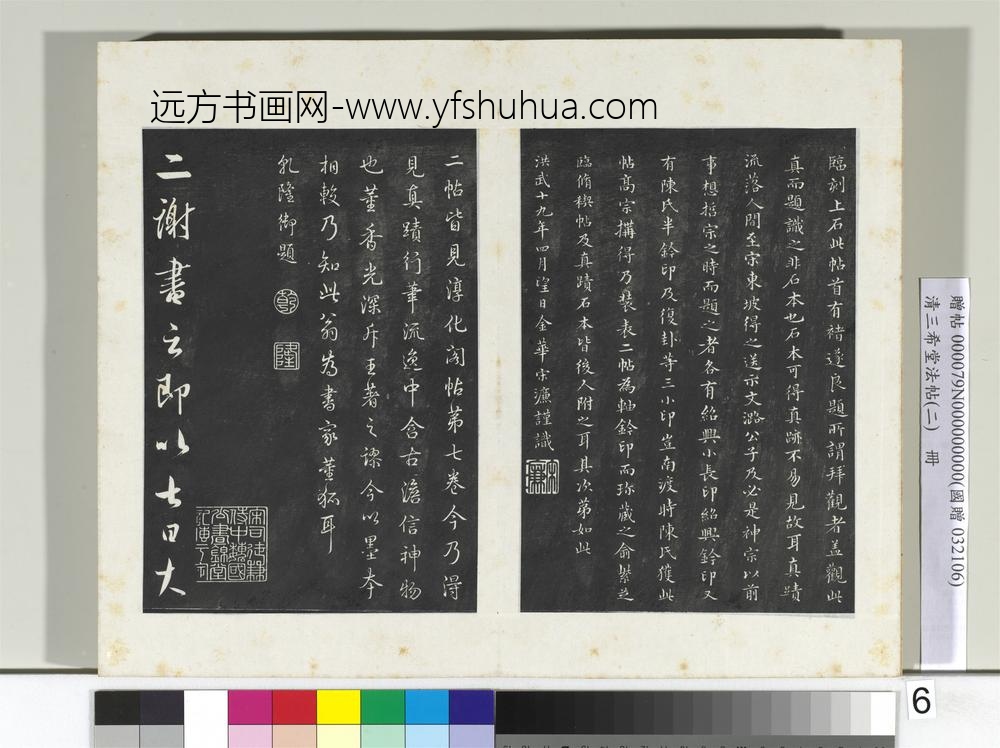 远方书画网-www.yfshuhua.com
臨刻上石此帖首有褚遂良題所謂拜觀者盖觀此
真而題識之非石本也石本可得真跡不易見故耳真蹟
流落人間至宋東坡得之送示文潞公子及必是神宗以前
事想哲宗之時而題之者各有紹興小長印紹興鈐印又
有陳氏半鈐印及復封等三小印豈南渡時陳氏獲此
帖高宗搨得乃裝表二帖為軸鈐印而珍藏之俞紫芝
臨脩禊帖及真蹟石本皆後人附之耳其次第如此
洪武十九年四月望日金華宋濂謹識
二帖皆見淳化阁帖第七卷今乃得
見真蹟行筆流逸中含古澹信神物
也董香光深斥王著之謬今以墨本
相較乃知此翁為書家董狐耳
乾隆御題
乾
隆
二謝書云即以七日大
贈帖 000079N000000000(國贈 032106)
清三希堂法帖(二) 冊
6